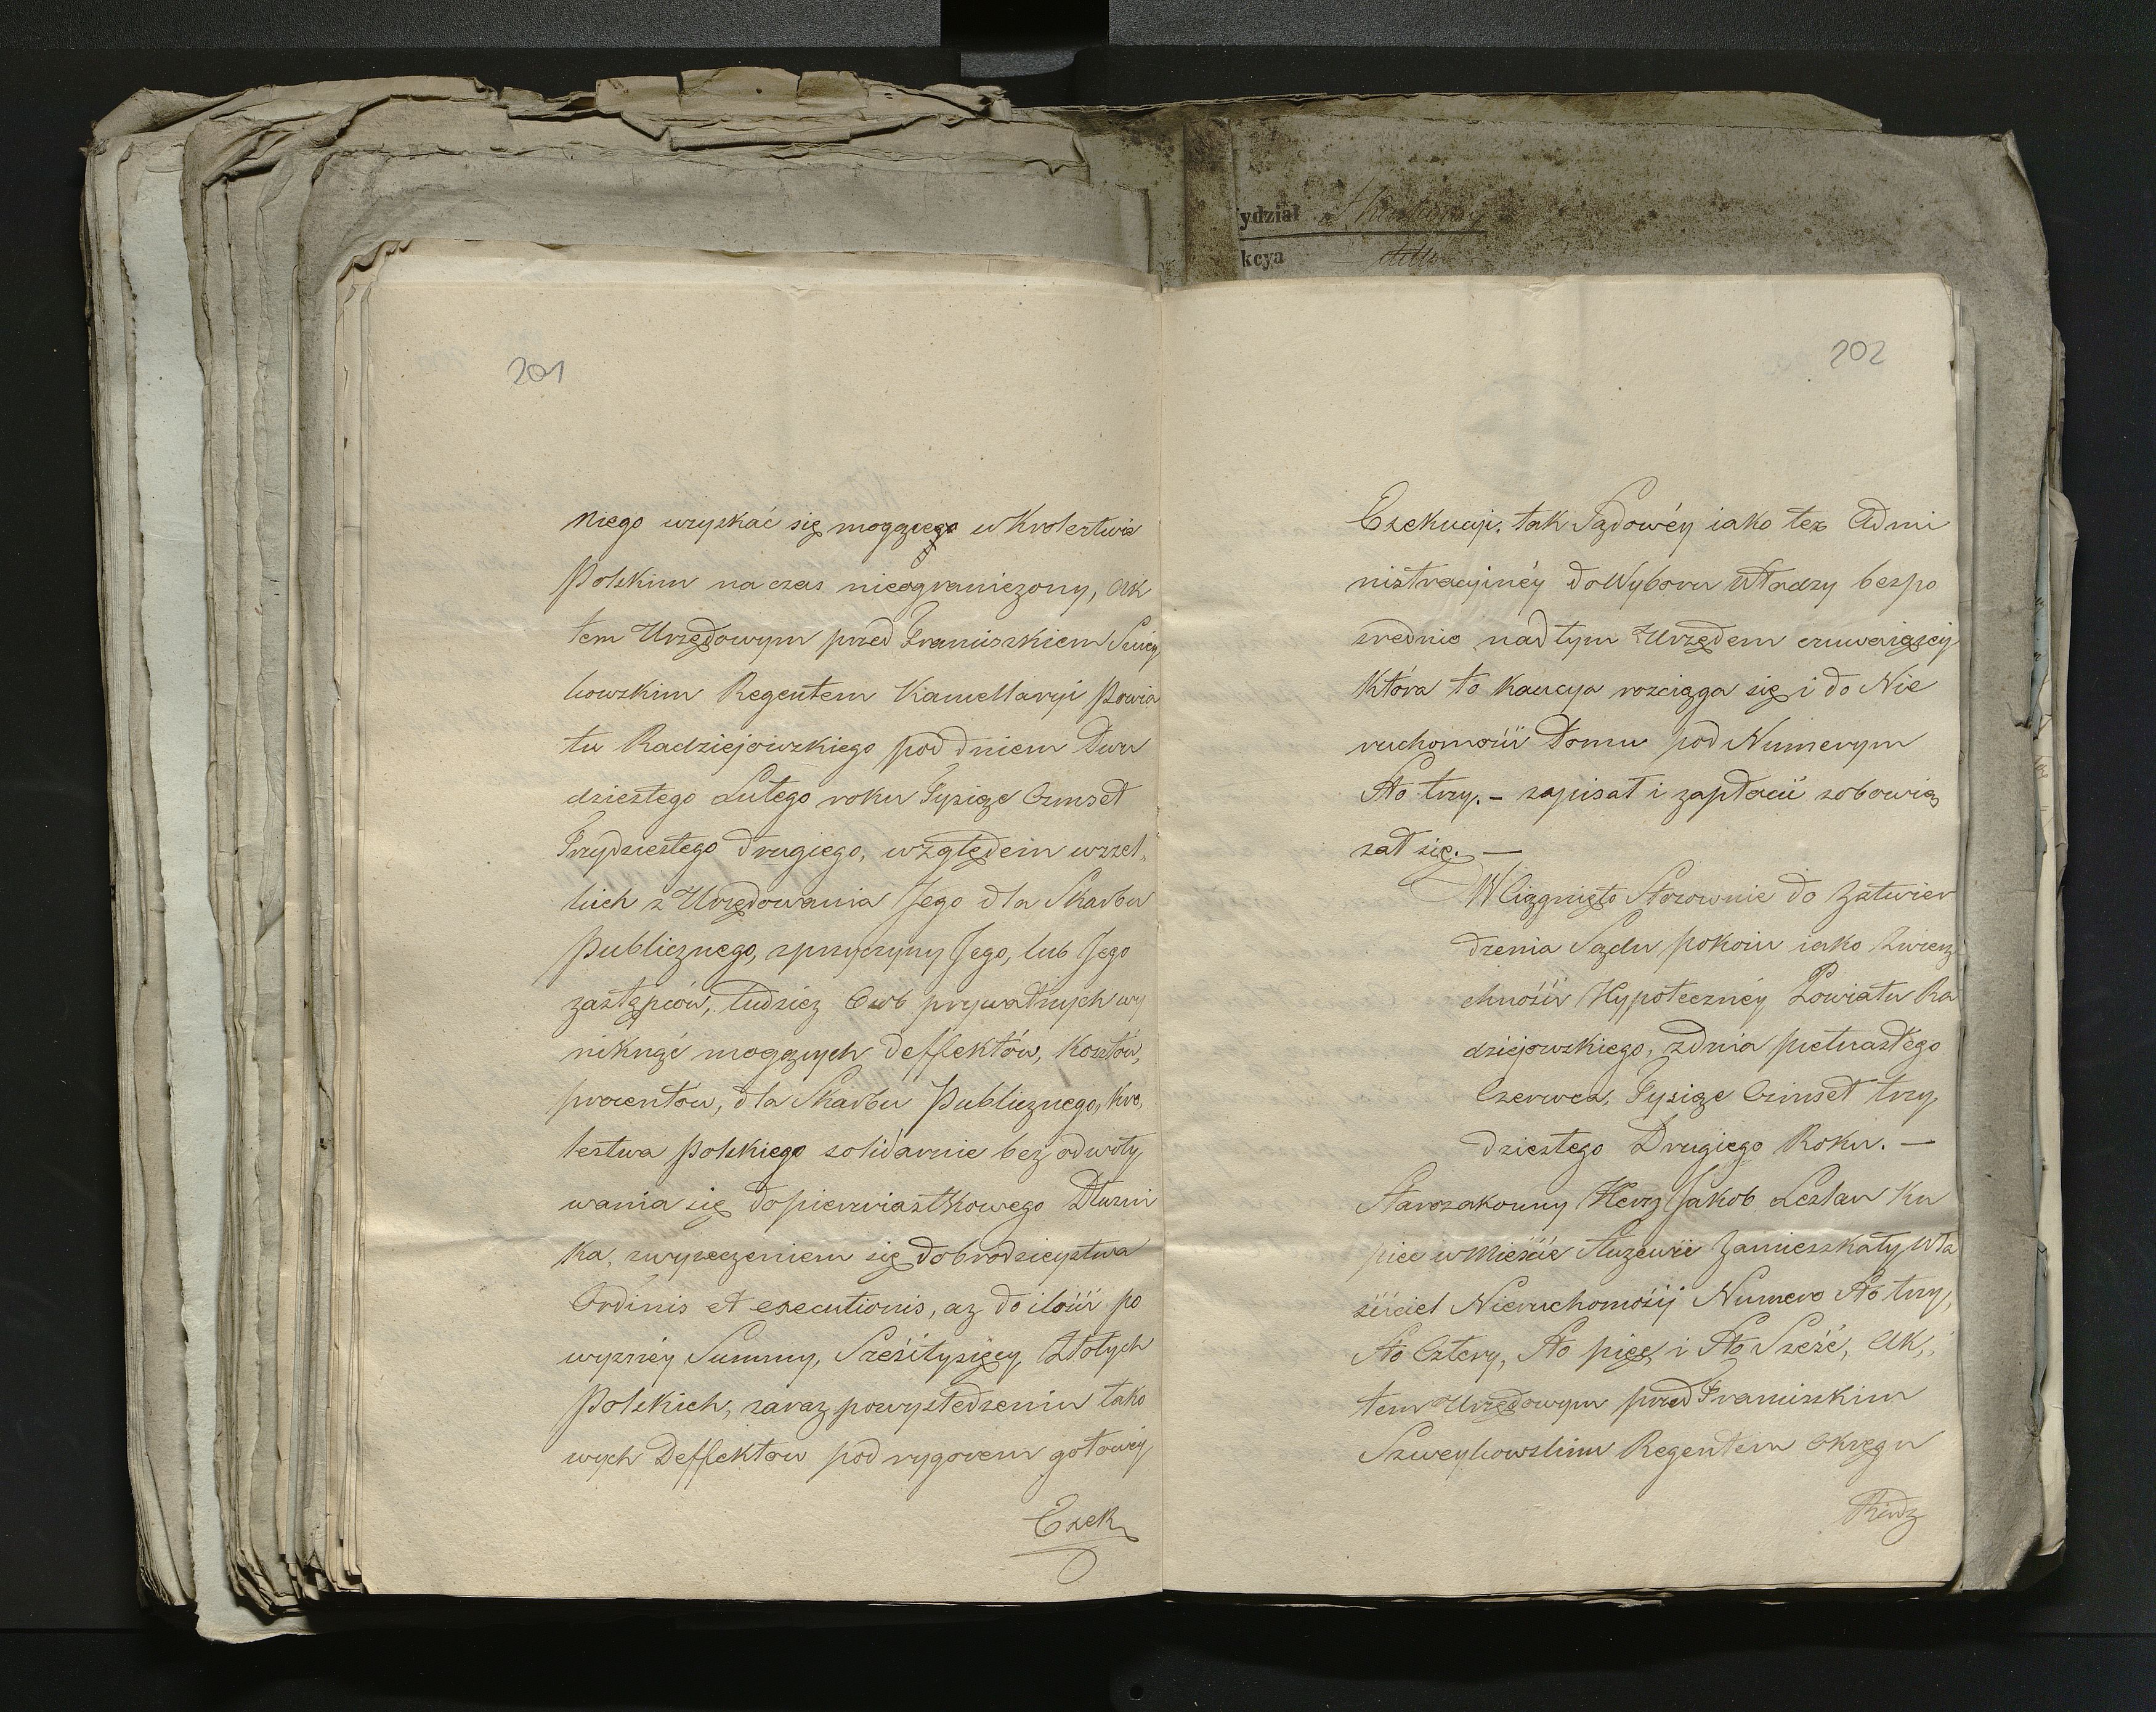 ydział Skarbowy
kcya
201
niego uzyskać się mogącego w Krolestwie
Polskim na czas nieograniczony, Ak
tem Urzędowym przed Franciszkiem Szwey
kowskim Regentem Kancellaryi Powia
tu Radziejowskiego pod dniem Dwu
dziestego Lutego roku Tysiąc Osmset
Trzydziestego drugiego, względem wszel,
kich z Urzędowania Jego dla Skarbu
Publicznego, zprzyczyny Jego, lub Jego
zastępców, tudziez Osob prywatnych wy
niknąć mogących deffektów, Kosztów,
procentow, dla Skarbu Publicznego, Kro,
lestwa Polskiego solidarnie bez odwoły
wania się do pierwiastkowego Dłużni
ka, zwyrzeczeniem się dobrodzieystwa
Ordinis et executionis, az do ilości po
wyzszey Summy, Sześćitysięcy, Złotych
Polskich, zaraz powyśledzeniu tako
wych Deffektow pod rygorem gotowey
Exek
202
Exekucyi. tak Sądowéy iako tez Admi
nistracyinéy do Wyboru Władzy bespo
srednio nad tym Urzędem czuwaiącey
która to Kaucya rozciąga się i do Nie
ruchomości Domu pod Numerym
Sto trzy. – zapisał i zapłacić zobowią
zał się. —
Wciągnięto Stosownie do Zatwier
dzenia Sądu pokoiu iako Zwierz
chności Hypoteczney Powiatu Ra
dziejowskiego, z dnia pietnastego
Czerwca, Tysiąc Osmset trzy,
dziestego Drugiego Roku. —
Starozakonny Hersz Jakob Leslau Ku
piec w Mieście Służewie Zamieszkały Wła
ściciel Nieruchomośij Numero Sto trzy,
Sto Cztery, Sto pięć i Sto Sześć, Ak,
tem Urzędowym przed Franciszkim
Szweykowskim Regentem Okręgu
Radz